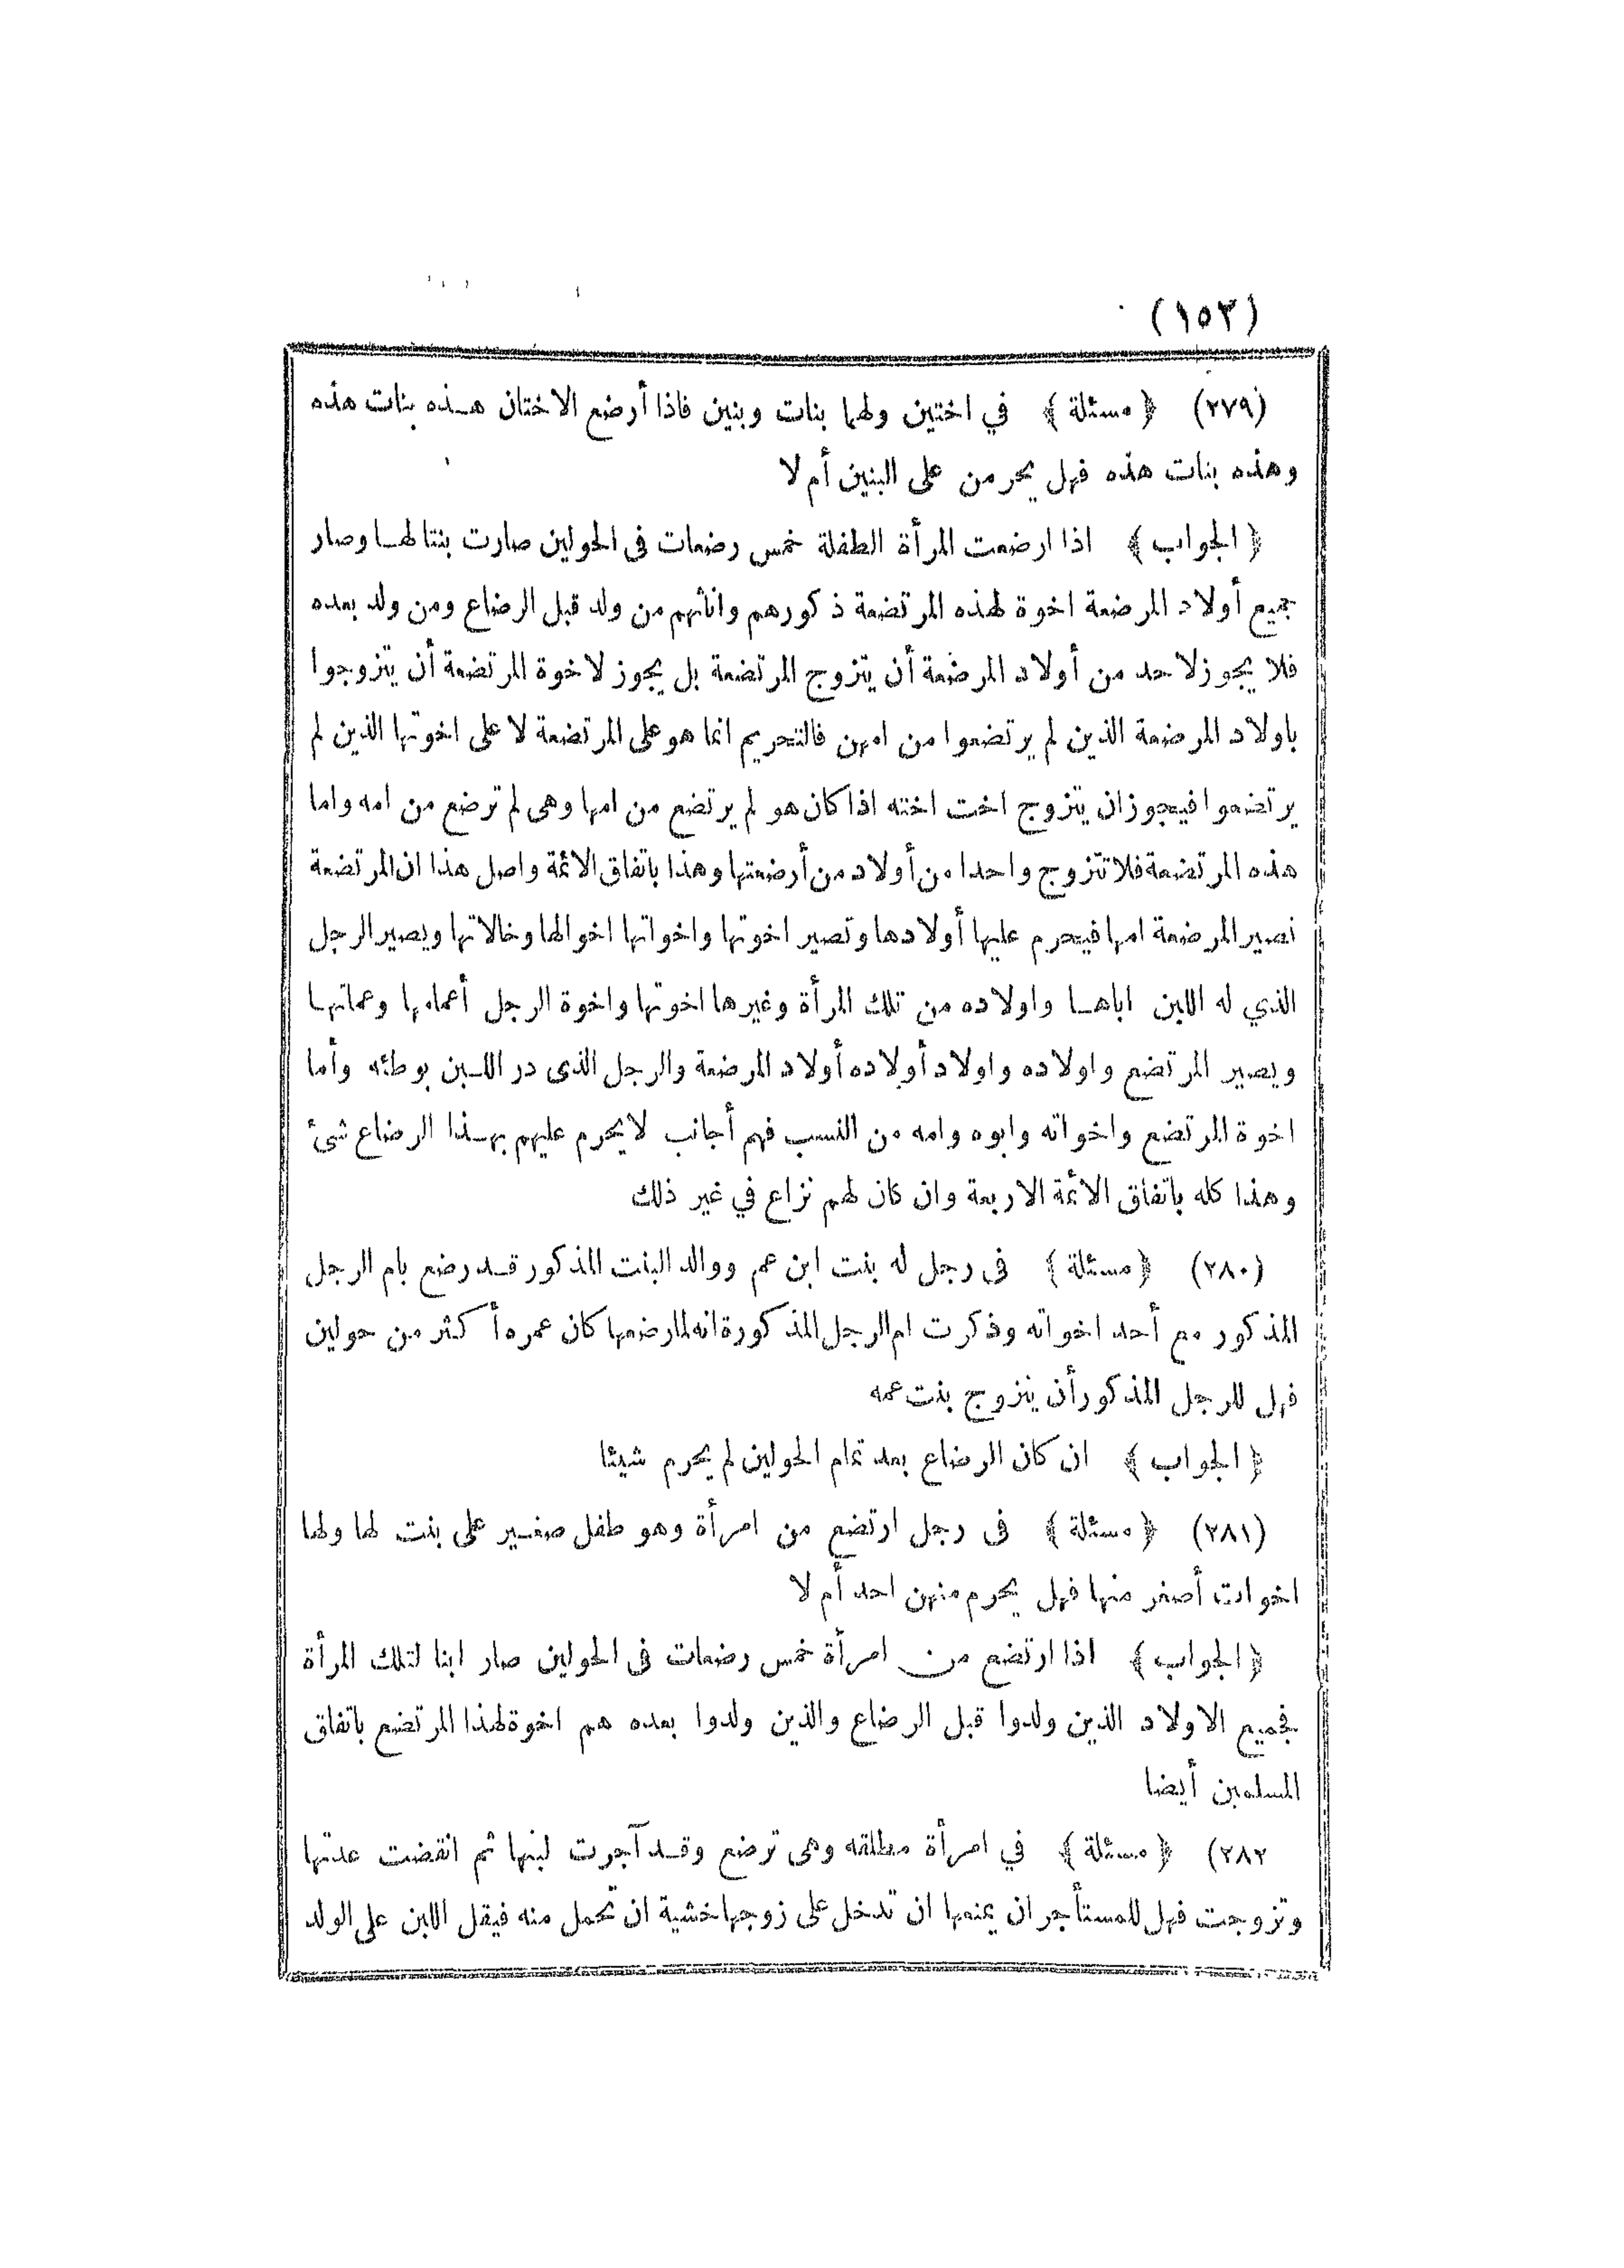 (١٥٢)
(٢٧٩) ﴿ مسئلة ﴾ في اختين ولهما بنات وبنين فاذا أرضع الاختان هذه بنات هذه
وهذه بنات هذه فهل يحرمن على البنين أم لا
﴿ الجواب ﴾ اذا ارضعت المرأة الطفلة خمس رضعات فى الحولين صارت بنتا لها وصار
جميع أولاد المرضعة اخوة لهذه المرتضعة ذكورهم واناثهم من ولد قبل الرضاع ومن ولد بعده
فلا يجوز لاحد من أولاد المرضعة أن يتزوج المرتضعة بل يجوز لاخوة المرتضعة أن يتزوجوا
باولاد المرضعة الذين لم يرتضعوا من امهن فالتحريم انما هو على المرتضعة لا على اخوتها الذين لم
يرتضعوا فيجوز ان يتزوج اخت اخته اذا كان هو لم يرتضع من امها وهى لم ترضع من امه واما
هذه المرتضعة فلا تتزوج واحدا من أولاد من أرضعتها وهذا باتفاق الائمة واصل هذا ان المرتضعة
تصير المرضعة امها فيحرم عليها أولادها وتصير اخوتها واخواتها اخوالها وخالاتها ويصير الرجل
الذي له اللبن اباها واولاده من تلك المرأة وغيرها اخوتها واخوة الرجل أعمامها وعماتها
ويصير المرتضع واولاده واولاد أولاده أولاد المرضعة والرجل الذى در اللبن بوطئه وأما
اخوة المرتضع واخواته وابوه وامه من النسب فهم أجانب لا يحرم عليهم بهذا الرضاع شئ
وهذا كله باتفاق الائمة الاربعة وان كان لهم نزاع في غير ذلك
(٢٨٠) ﴿ مسئلة ﴾ فى رجل له بنت ابن عم ووالد البنت المذكور قد رضع بام الرجل
المذكور مع أحد اخواته وذكرت ام الرجل المذكورة انه لما رضعها كان عمره أكثر من حولين
فهل للرجل المذكور أن يتزوج بنت عمه
﴿ الجواب ﴾ ان كان الرضاع بعد تمام الحولين لم يحرم شيئا
(٢٨١) ﴿ مسئلة ﴾ فى رجل ارتضع من امرأة وهو طفل صغير على بنت لها ولها
اخوات أصغر منها فهل يحرم منهن احد أم لا
﴿ الجواب ﴾ اذا ارتضع من امرأة خمس رضعات فى الحولين صار ابنا لتلك المرأة
فجميع الاولاد الذين ولدوا قبل الرضاع والذين ولدوا بعده هم اخوة لهذا المرتضع باتفاق
المسلمين أيضا
٢٨٢) ﴿ مسئلة ﴾ في امرأة مطلقه وهى ترضع وقد آجرت لبنها ثم انقضت عدتها
وتزوجت فهل للمستأجر ان يمنعها ان تدخل على زوجها خشية ان تحمل منه فيقل اللبن على الولد